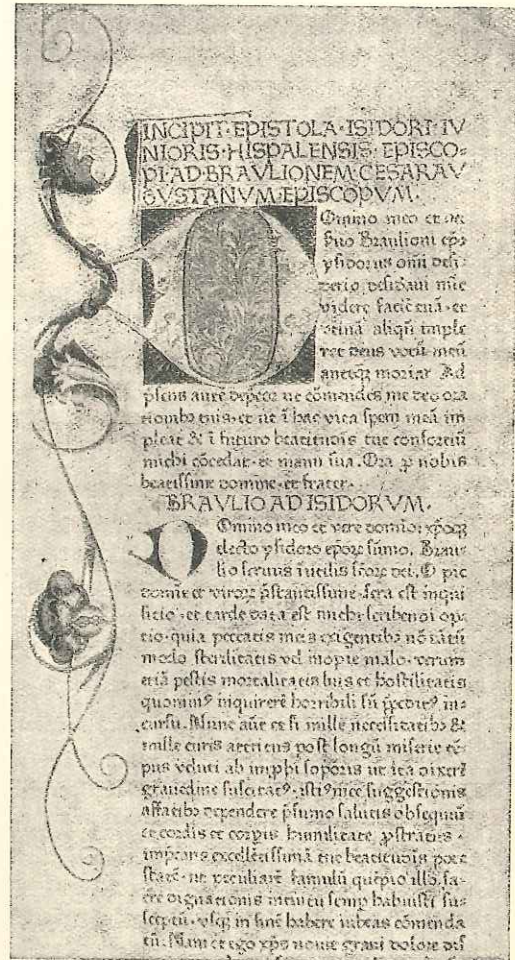 INCIPIT·EPISTOLA·ISIDORI·IV
NIORIS·HISPALENSIS·EPISCO-
PI·AD·BRAVLIONEM·CESARAV
GVSTANVM·EPISCOPVM·
Omino meo et dei
suo Braulioni epo
ysidorus oni desi-
derio desidaui
videre facie tuā· et
vtinā aliqn imple
ret deus votū meū
anteqz moriar Ad
pscns autē deprcor ut cōmendes me deo ora
tionibz tuis· et ut ī hac vita spem meā im
pleat & ī futuro beatitudis tue consortiū
michi cōcedat· et manu sua. Ora p nobis
beatissime domine· et frater·
BRAVLIO AD ISIDORVM·
DOmino meo et vere domio: xpoqz
electo ysidoro epoꝝ sūmo. Brau-
lio seruus īutilis scoꝝ dei. O pie
domie et viroꝝ pstantissime· sera est inqui
sicio· et tarde data est michi scribendi op
tio· quia peccatis meis exigentibz nō tātū
modo sterilitatis vel inopie malo· verum
etiā pestis mortalitatis luis et hostilitatis
quominꝰ inquirerē horribili sū in-
cursu. Nunc autē et si mille necessitatibz &
mille curis post longū miserie tē-
pus veluti ab imphi soporis ut ita dixerī
grauedine suscitatꝰ· istiꝰ mee suggestionis
affatibz dependere psumo salutis obsequiū
et cordis et corpis humilitate pstratus·
imprans excellētissimā tue beatitudis pote
statē· ut peculiarē famulū quēpio illo· sa-
cre dignationis intuitu semp habuisti sus
sceptū· vsqz in finē habere iubeas cōmenda
tū. Nam et ego xps noue graui dolore dis